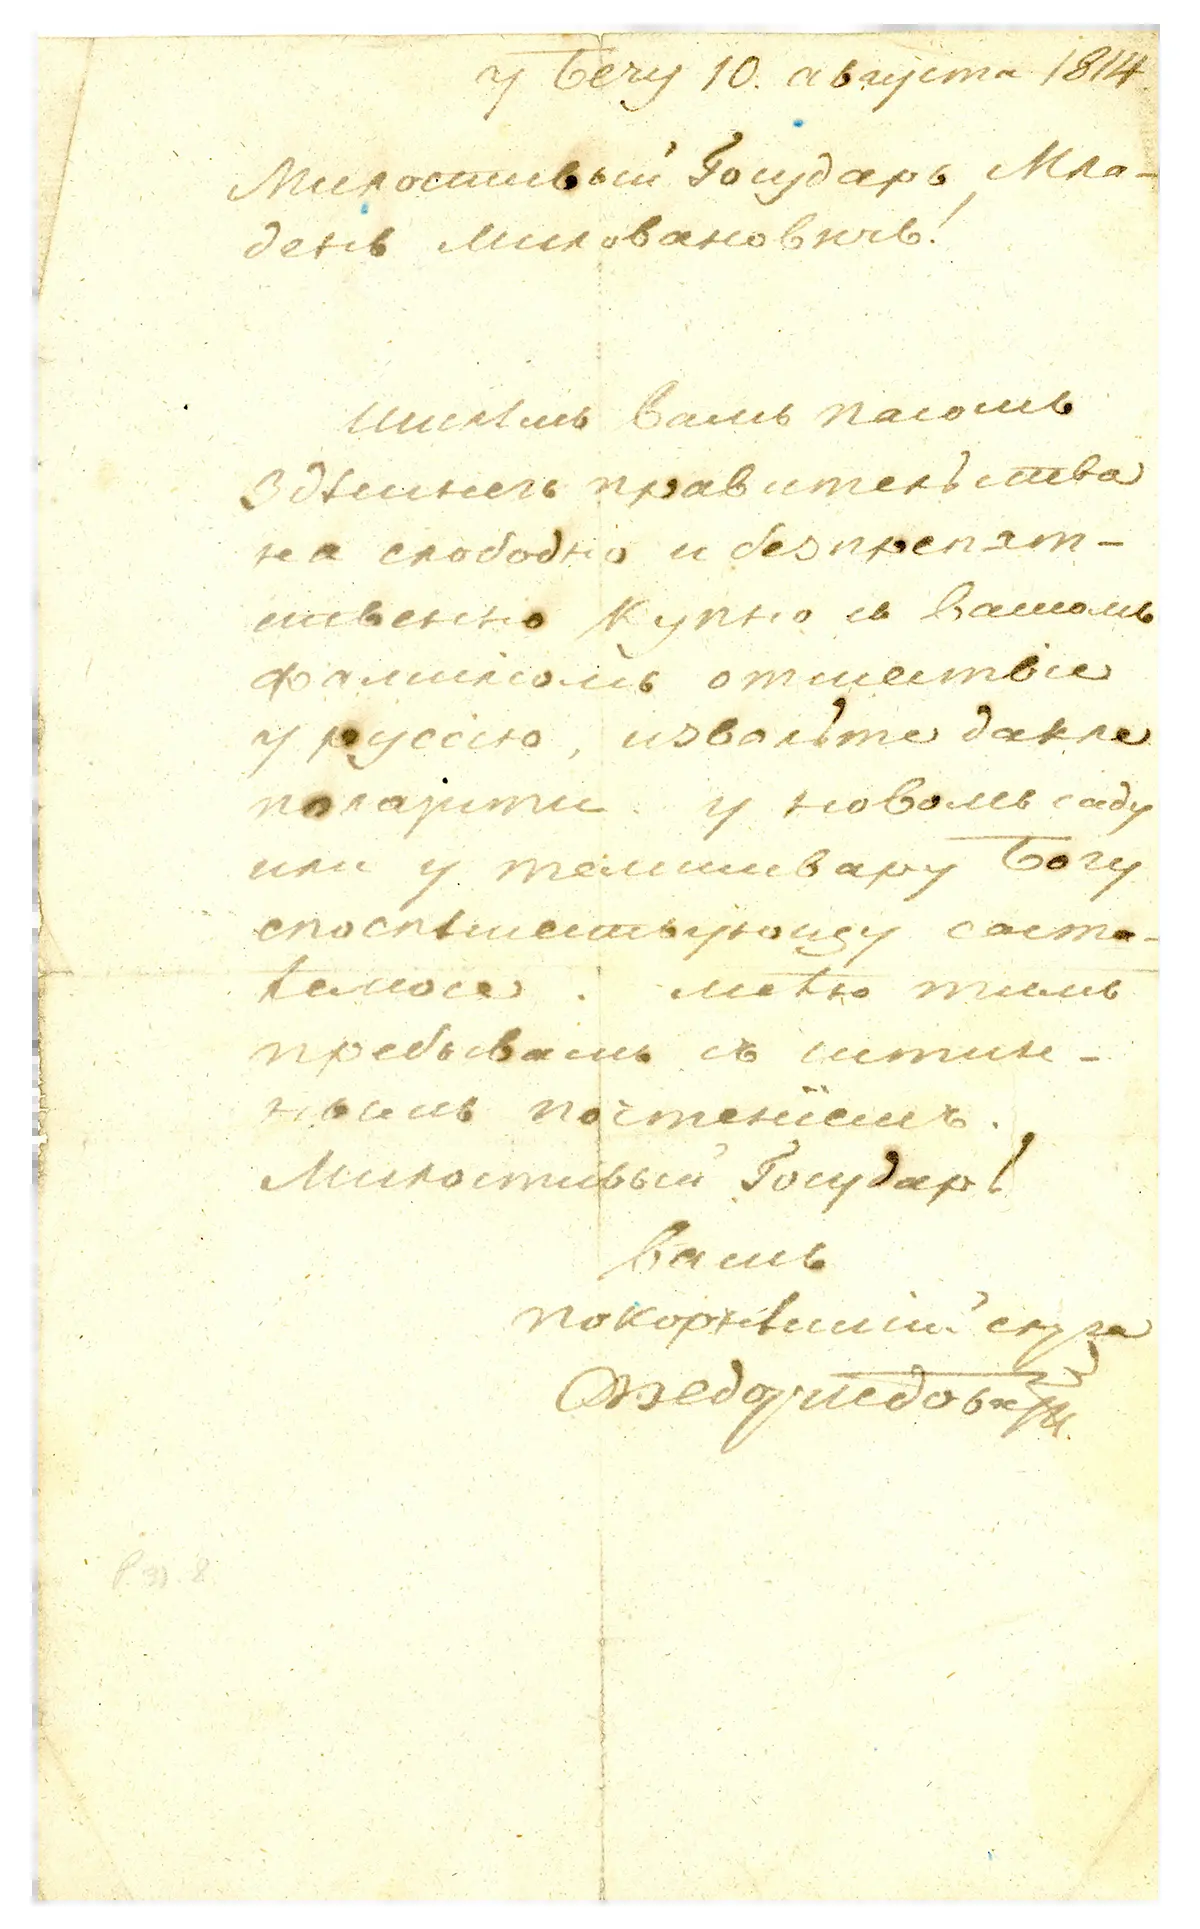 у Бечу 10. августа 1814.
Милостивый Государь, Мла-
денъ Миловановичь!
Шилѣмь вамь пасошь
Здѣшнегъ правителъства
на слободно и безпрепят-
ственно купно съ вашомь
фамиліомъ отшествіе
у руссію, изволъте дакле
полазити у новомъ саду
или у темишвару Богу
споспѣшествующу саста-
ѣемосе. међю тимъ
пребывамь съ истин-
нымъ почтенїемъ.
Милостивый Государ!
вашь
покорнѣйшій слуга